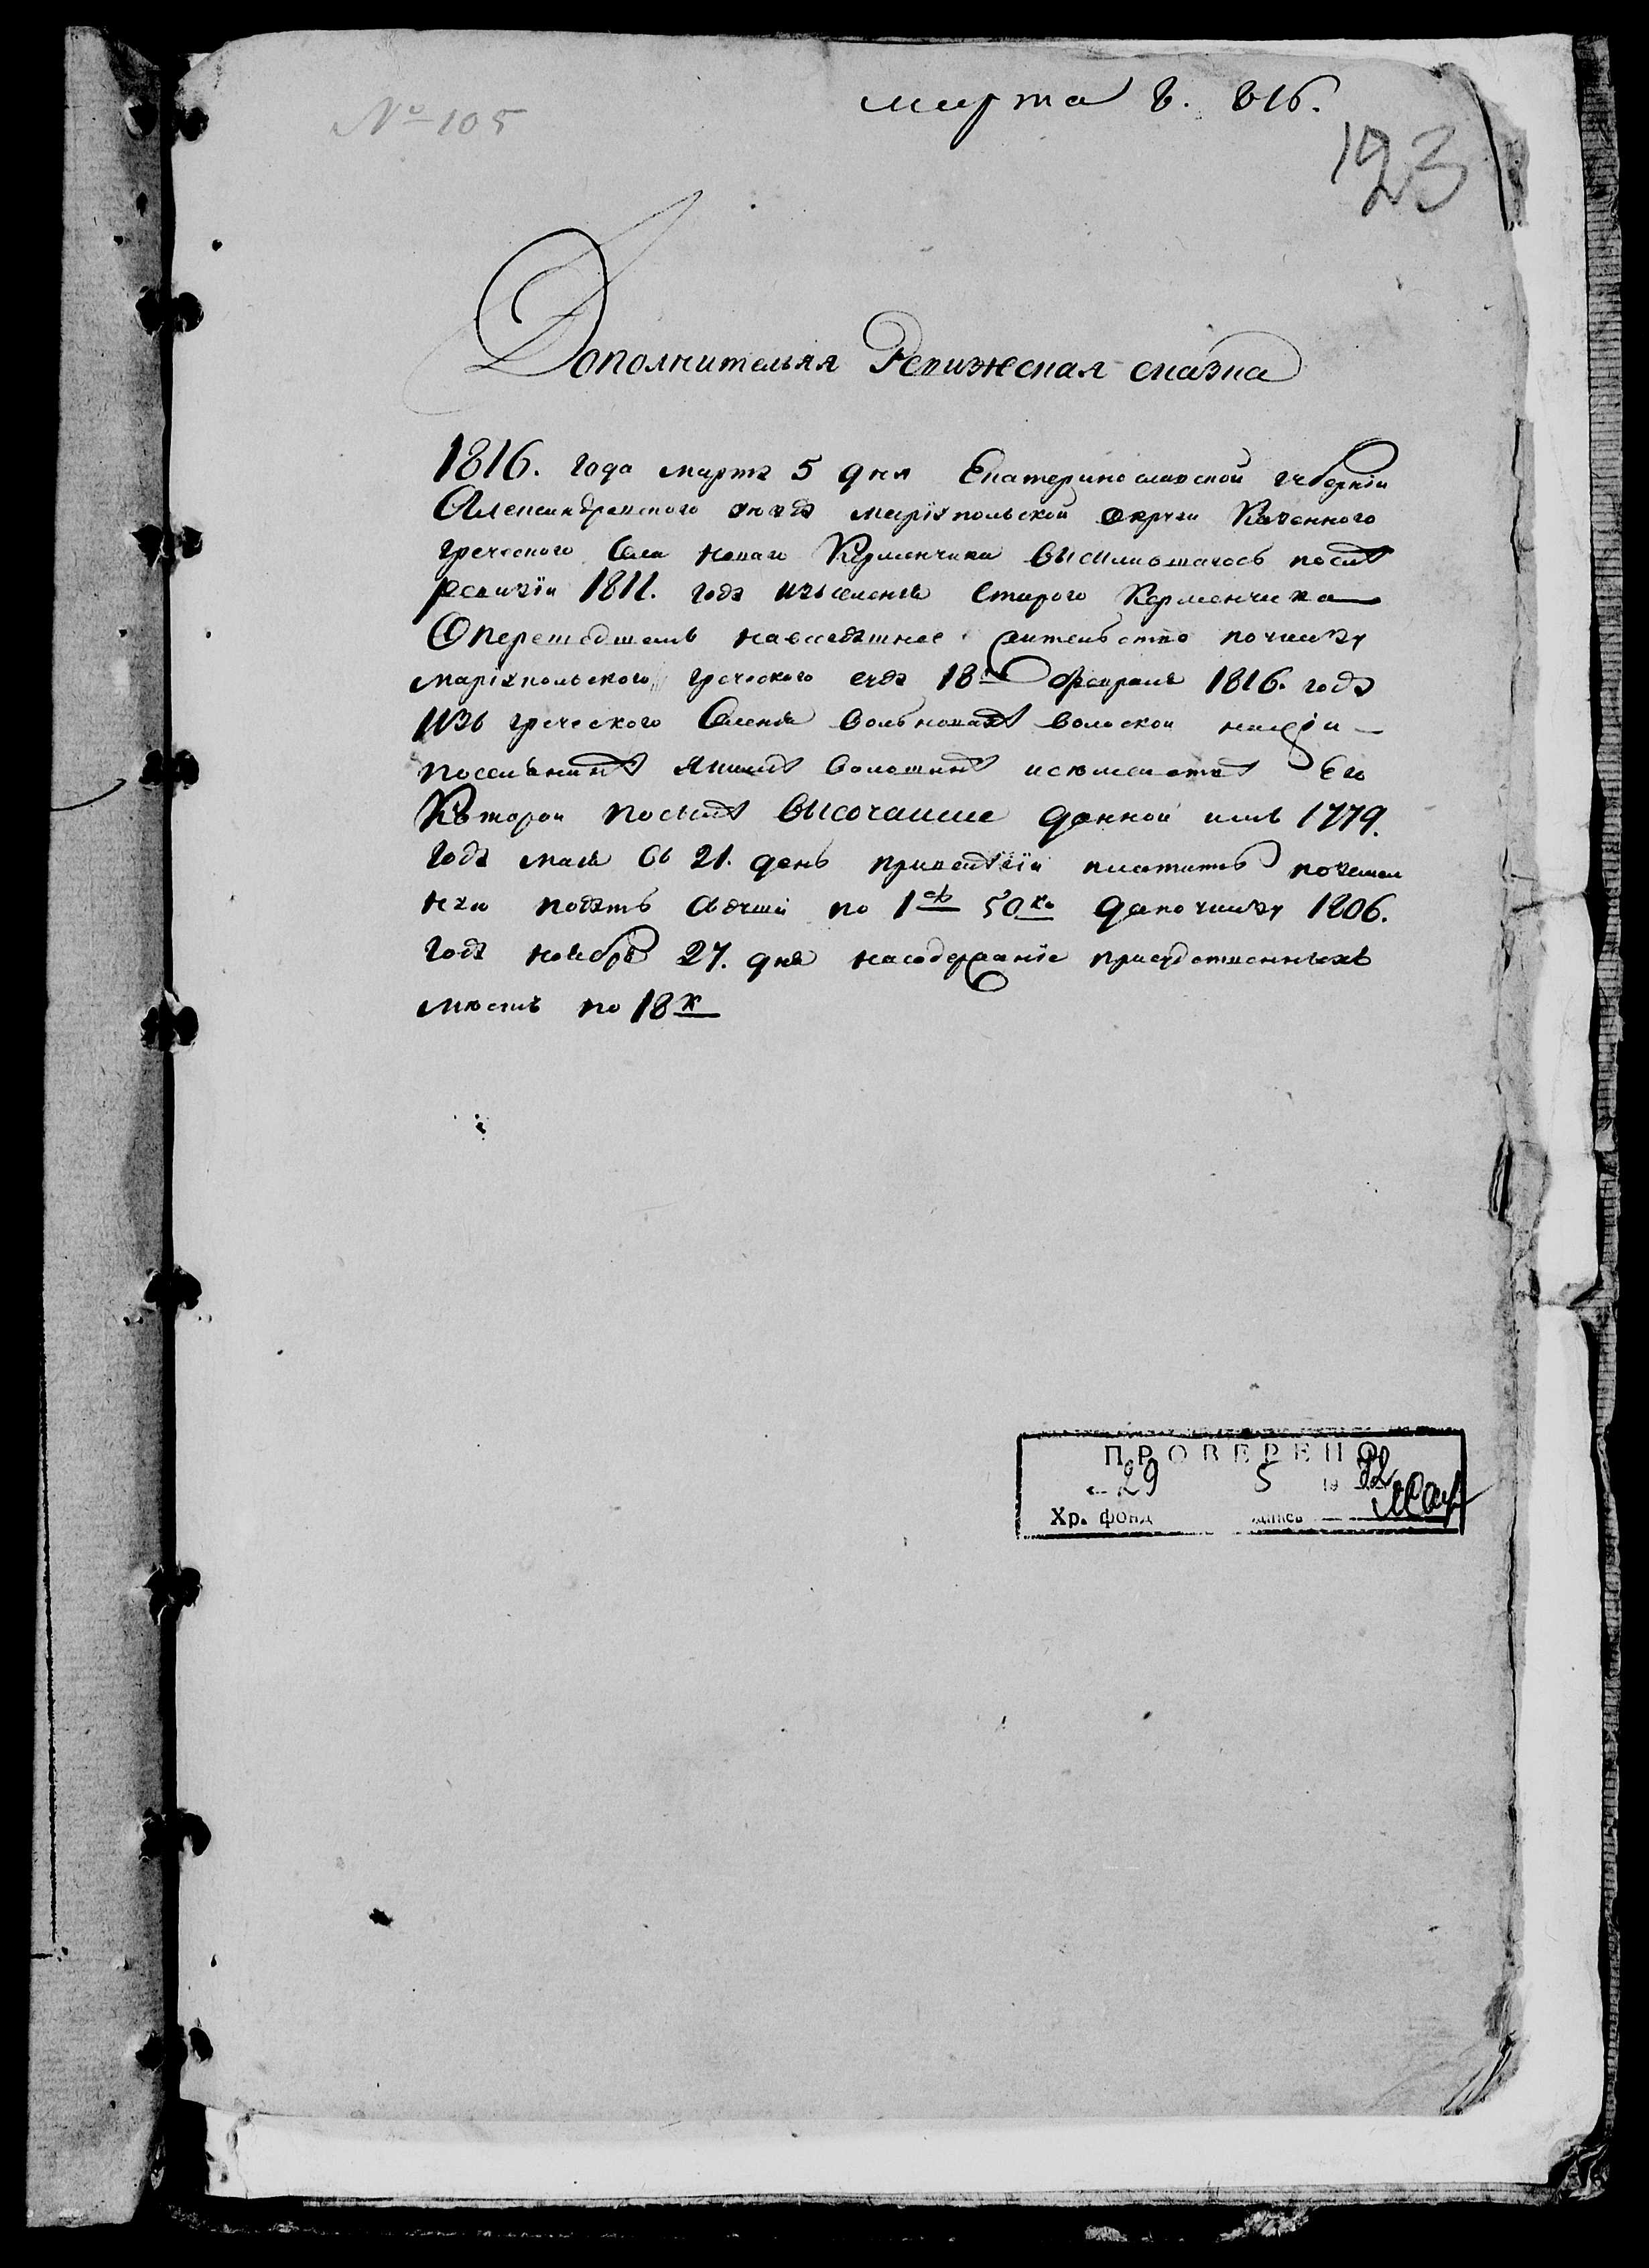 № 105
марта 8. 816.
123
Дополнителная Ревижская сказка
1816. года марта 5 дня Екатеринославской губернїи
Александровского уезда марїупольской округи Казенного
греческого Села новаго Керменчика выселившагось после
ревизїи 1811. года изъ селенія Старого Керменчика
О перешедшемъ на всегдашнее жительство по указу
марїупольского греческого суда 18 февраля 1816. года
изъ греческого Селенія волоской нацїи
поселянинъ Его
Которой после высочайше данной имъ 1779.
года мая въ 21. день привелегїи платить поземел
ную подать въ по 1 50 ко да по указу 1806.
года ноября 27. дня на содержанїе присудственныхъ
местъ по 18 к
ПРОВЕРЕНО
29 5 19 92
Хр. фонд